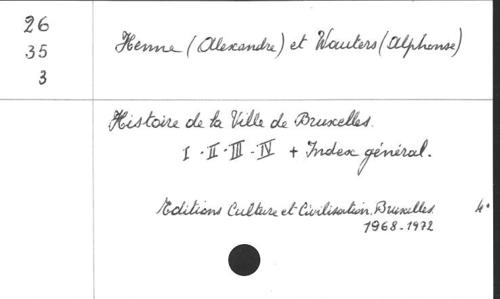 26
35
3
Henne (Alexandre) et Wauters (Alphonse)
Histoire de la Ville de Bruxelles.
I · II · III · IV + Index général.
Editions Culture et Civilisation. Bruxelles. 4°
1968-1972